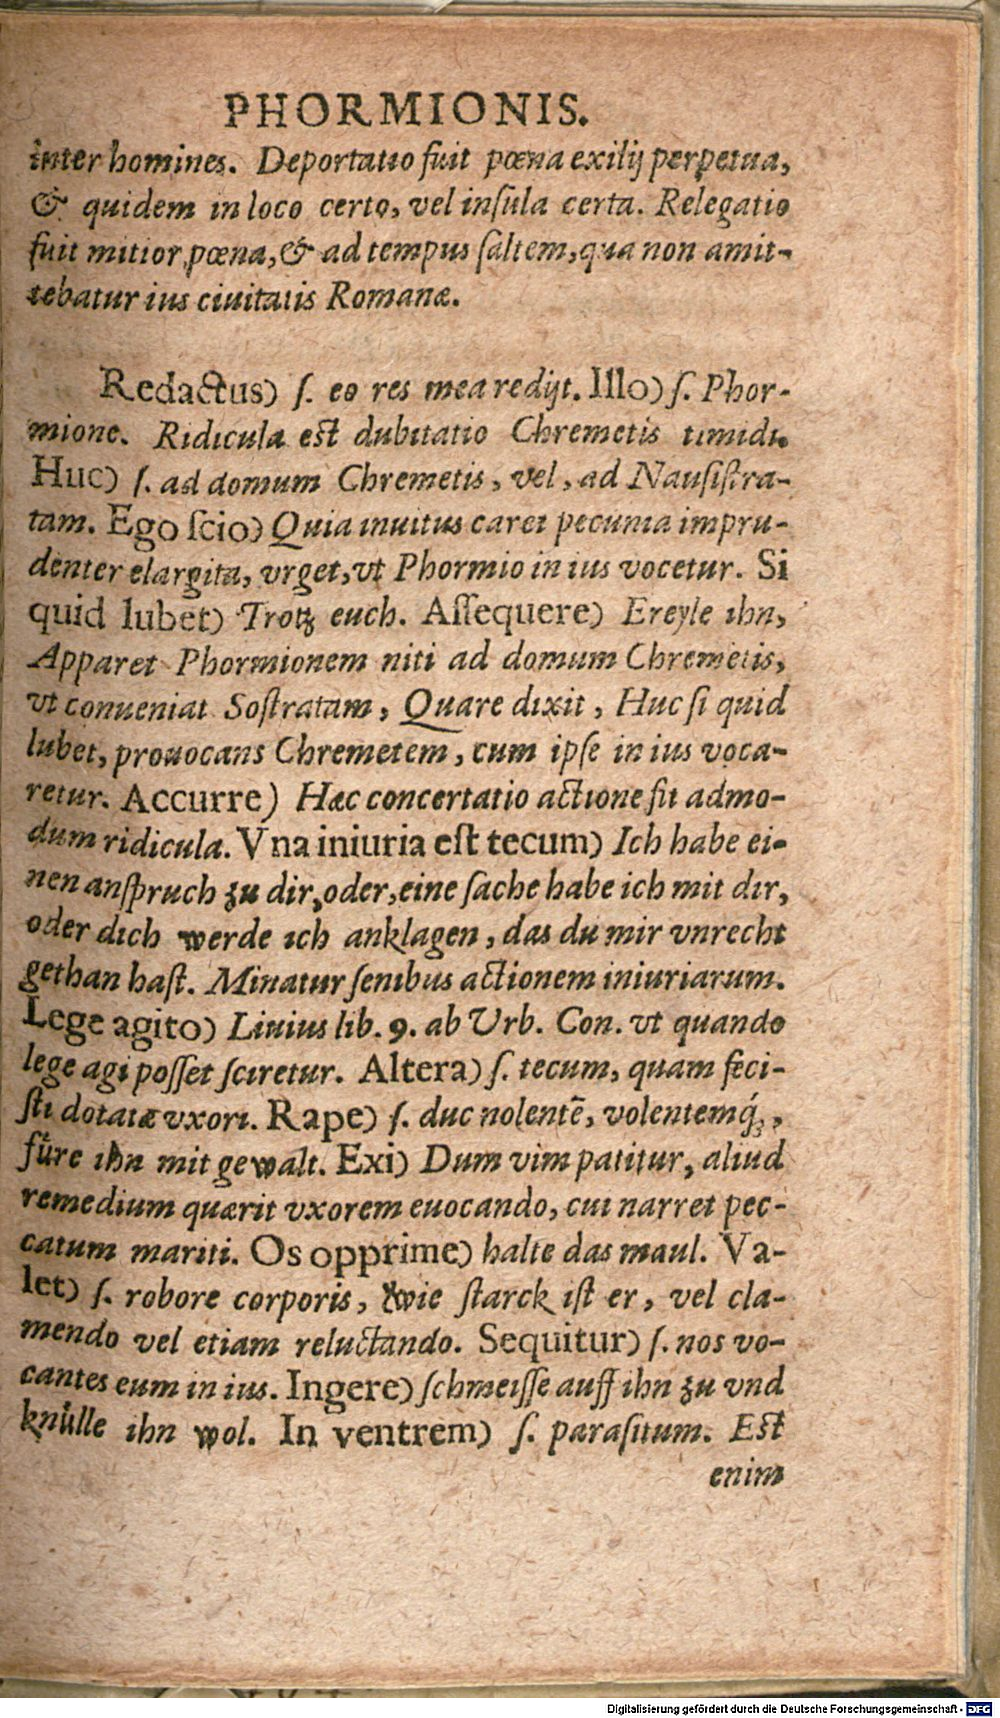 PHORMIONIS.
inter homines. Deportatio fuit pœna exilij perpetua,
& quidem in loco certo, vel inſula certa. Relegatio
fuit mitior pœna, & ad tempus ſaltem, qua non amit-
tebatur ius ciuitatis Romanæ.
Redactus) ſ. eo res mea redijt. Illo) ſ. Phor-
mione. Ridicula est dubitatio Chremetis timidi.
Huc) ſ. ad domum Chremetis, vel, ad Nauſiſtra-
tam. Ego ſcio) Quia inuitus caret pecunia impru-
denter elargita, vrget, vt Phormio in ius vocetur. Si
quid lubet) Trotz euch. Aſſequere) Ereyle ihn,
Apparet Phormionem niti ad domum Chremetis,
vt conueniat Soſtratam, Quare dixit, Huc ſi quid
lubet, prouocans Chremetem, cum ipſe in ius voca-
retur. Accurre) Hæc concertatio actione fit admo-
dum ridicula. Vna iniuria eſt tecum) Ich habe ei-
nen anſpruch zu dir, oder, eine ſache habe ich mit dir,
oder dich werde ich anklagen, das du mir vnrecht
gethan haſt. Minatur ſenibus actionem iniuriarum.
Lege agito) Liuius lib. 9. ab Urb. Con. vt quando
lege agi poſſet ſciretur. Altera) ſ. tecum, quam feci-
ſti dotatæ vxori. Rape) ſ. duc nolentē, volentemq́;,
füre ihn mit gewalt. Exi) Dum vim patitur, aliud
remedium quærit vxorem euocando, cui narret pec-
catum mariti. Os opprime) halte das maul. Va-
let) ſ. robore corporis, wie ſtarck iſt er, vel cla-
mendo vel etiam reluctando. Sequitur) ſ. nos vo-
cantes eum in ius. Ingere) ſchmeiſſe auff ihn zu vnd
knülle ihn wol. In ventrem) ſ. paraſitum. Est
enim
Digitalisierung gefördert durch die Deutsche Forschungsgemeinschaft - DFG